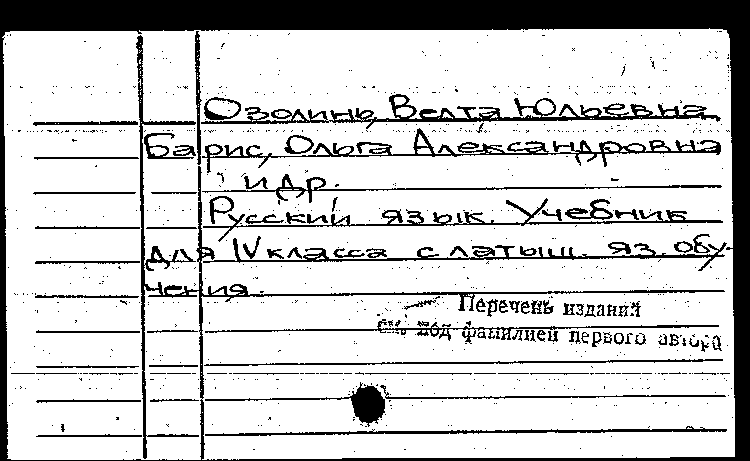 Озолинь, Велта Юльевна,
Барис, Ольга Александровна
и др.
Русский язык. Учебник
для IV класса с латыш. яз. обу-
чения.
Перечень изданий
см. под фамилией первого автора